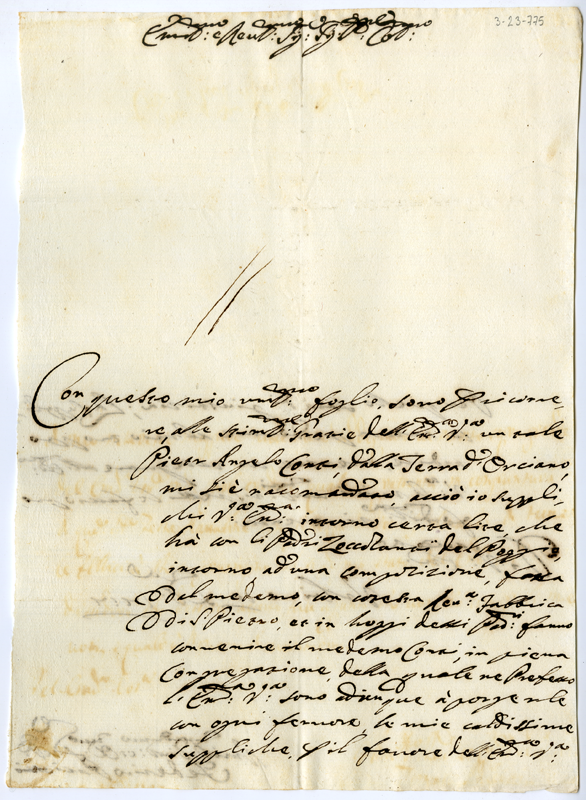 3-23-775
Em.mo e Rev.mo Sig: Sig: P.rone Col.mo
Con questo mio um.mo foglio, sono à ricorre-
re, alle stim.me Grazie dell'Em.za V.ra un tale
Pietr Angelo Conti, della Terra d'Orciano,
mi si è racomandato, acciò io suppli
chi V.ra Em.za intorno certa lite, che
hà con li Padri Zoccolanti del Poggio,
intorno ad una compositione, fatta
Del medemo, con cotesta Reu.a Fabbrica
Di S. Pietro, et in hoggi detti Padri fanno
convenire il medemo Conti, in piena
Congregazione, della quale ne Prefetto
l'Em.za V.ra sono adunque à porgerle
con ogni fervore, le mie caldissime
suppliche, p il favore dell'Em.za V.ra